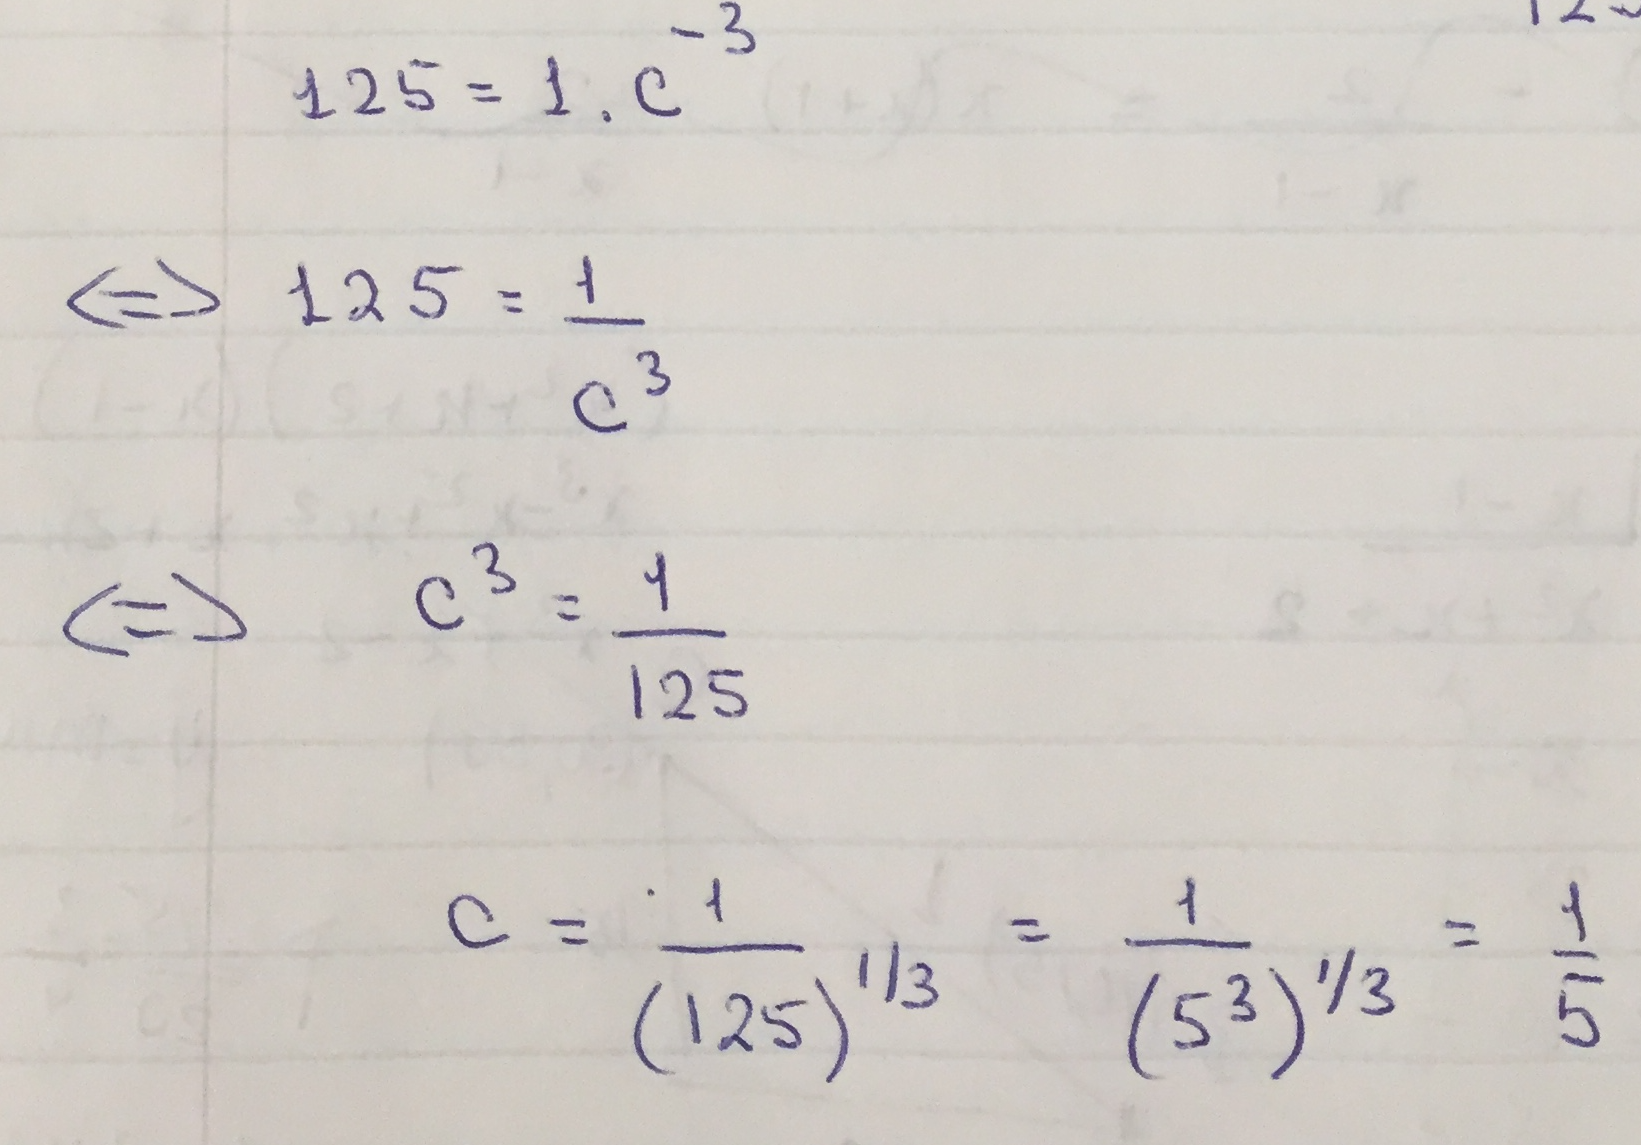 125 = 1 . c^-3
<=> 125 = 1/c^3
<=> c^3 = 1/125
c = 1/(125)^1/3 = 1/(5^3)^1/3 = 1/5